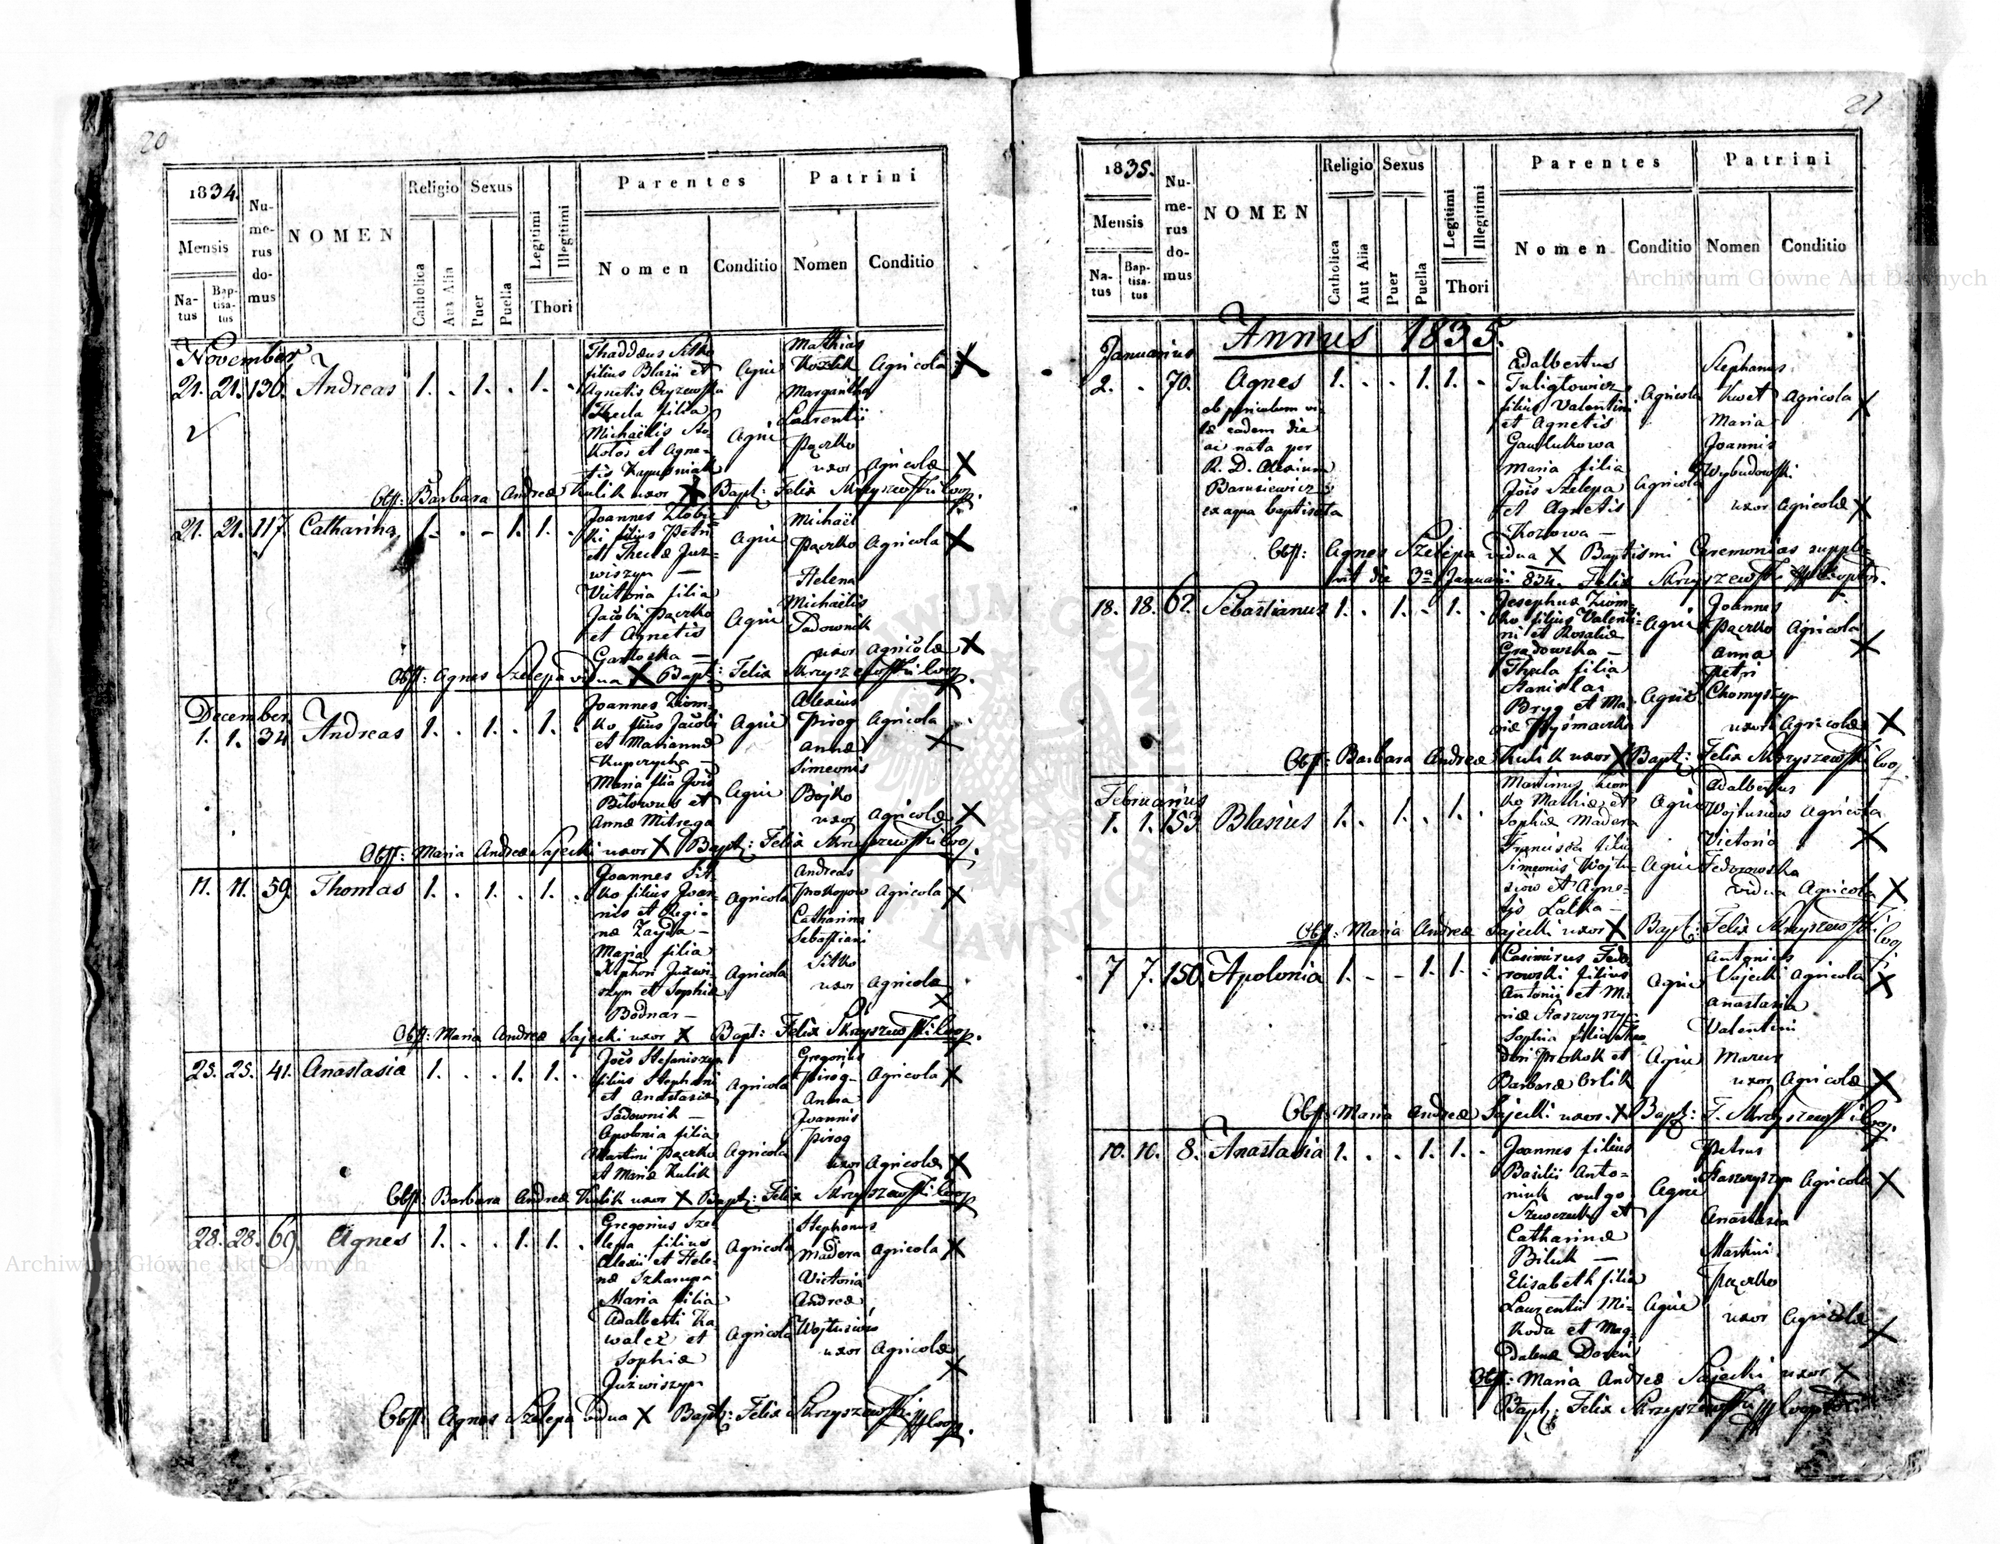 20
1834.
Numerus domus
NOMEN
Religio
Sexus
Legitimi
Illegitimi
Parentes
Patrini
Mensis
Catholica
Aut Alia
Puer
Puella
Thori
Nomen
Conditio
Nomen
Conditio
Natus
Baptisatus
November
21. 21. 136. Andreas 1. . 1. . 1. .
Thaddæus
filius Blasii et
Agnetis
Thecla filia
Michaëlis
et Agne-
tis
Agric
Agric
Mathias
Kozlik
Margaritha
Laurentii
Pączko
uxor
Agricola X
Agricolæ X
Obst: Barbara Andreæ Kulik uxor X Bapt: Felix Skrzyszewski Coop.
21. 21. 117. Catharina 1. . - 1. 1. .
Joannes
filius Petri
et Theclæ Juz-
wiszyn —
Victoria filia
Jacobi Pączko
et Agnetis
Agric
Agric
Michaël
Pączko
Helena
Michaëlis
Sadownik
uxor
Agricola X
Agricolæ X
Obst: Agnes Szelepa vidua X Bapt: Felix Skrzyszewski Coop.
December
1. 1. 34 Andreas 1. . 1. . 1. .
Joannes Ziom-
ko filius Jacobi
et Mariannæ
Kuprycha —
Maria filia Jois
et
Annæ Mitręga
Agric
Agric
Alexius
Pirog
Annæ
Simeonis
Bojko
uxor
Agricola X
Agricolæ X
Obst: Maria Andreæ Sajecki uxor X Bapt: Felix Skrzyszewski Coop.
11. 11. 59. Thomas 1. . 1. . 1. .
Joannes Sit-
ko filius Joan-
nis et Regi-
næ Zayda —
Maria filia
Juzwi-
szyn et Sophiæ
Bodnar —
Agricola
Agricola
Andreas
Prokopow
Catharina
Sebastiani
Sitko
uxor
Agricola X
Agricolæ X
Obst: Maria Andreæ Sajecki uxor X Bapt: Felix Skrzyszewski Coop.
25. 25. 41. Anastasia 1. . . 1. 1. .
Joës Stefaniszyn
filius Stephani
et Anastasiæ
Sadownik —
Apolonia filia
Martini Pączko
et Mariæ Kulik
Agricola
Agricola
Gregorius
Piróg
Anna
Joannis
Pirog
uxor
Agricola X
Agricolæ X
Obst: Barbara Andreæ Kulik uxor X Bapt: Felix Skrzyszewski Coop.
28. 28. 69. Agnes 1. . . 1. 1. .
Gregorius Sze-
lepa filius
Alexii et Hele-
næ Szkarupa
Maria filia
Adalberti Ko-
walcz et
Sophiæ
Juzwiszyn
Agricola
Agricola
Stephanus
Madera
Victoria
Andreæ
Wojtusiów
uxor
Agricola X
Agricolæ X
Obst: Agnes Szelepa vidua X Bapt: Felix Skrzyszewski Coop.
21
1835.
Numerus domus
NOMEN
Religio
Sexus
Legitimi
Illegitimi
Parentes
Patrini
Mensis
Catholica
Aut Alia
Puer
Puella
Thori
Nomen
Conditio
Nomen
Conditio
Natus
Baptisatus
Annus 1835.
Januarius
2. . 70. Agnes 1. . . 1. 1. .
ob periculum vi-
tæ eadem die
ac nata per
R. D. Alexium
Barusiewicz
ex aqua baptisata
Adalbertus
Tuligłowicz
filius Valentini
et Agnetis
Gawlukowa
Maria filia
Jöis Szelepa
et Agnetis
Kozłowa —
Agricola
Agricola
Stephanus
Kwet
Maria
Joannis
Wybudowski
uxor
Agricola X
Agricolæ X
Obst: Agnes Szelepa vidua X Baptismi Ceremonias supple-
vit die 3a Januarii 834. Felix Skrzyszewski
18. 18. 62. Sebastianus 1. . 1. - 1. .
Josephus Ziom-
ko filius Valenti-
ni et Rosaliæ
Gradowska —
Thecla filia
Stanislai
Bryg et Ma-
riæ
Agric
Agric
Joannes
Pączko
Anna
Petri
Chomyszyn
uxor
Agricola X
Agricolæ X
Obst: Barbara Andreæ Kulik uxor X Bapt: Felix Skrzyszewski Coop.
Februarius
1. 1. 153 Blasius 1. . 1. . 1. .
Martinus Ziom-
ko Mathiæ et
Sophiæ Madera
Francisca filia
Simeonis Wojtu-
siów et Agne-
tis Lalka —
Agric
Agric
Adalbertus
Wojtusiow
Victoria
Fedorowska
vidua
Agricola X
Agricola X
Obst: Maria Andreæ Sajecki uxor X Bapt: Felix Skrzyszewski Coop.
7 7. 150. Apolonia 1. - - 1. 1. -
Casimirus Fedo-
rowski filius
Antonii et Ma-
riæ
Sophia filia Theo-
dori Prokok et
Barbaræ Orlik
Agric
Agric
Antonius
Sajecki
Anastasia
Valentini
Marus
uxor
Agricola X
Agricolæ X
Obst: Maria Andreæ Sajecki uxor. X Bapt: F. Skrzyszewski Coop.
10. 10. 8. Anastasia 1. . . 1. 1. .
Joannes filius
Basilii Anto-
niuk vulgo
Szewczuk et
Catharinæ
Biluk —
Elisabeth filia
Laurentii Mi-
koda et Mag-
dalenæ Doreń
Agric
Agric
Petrus
Anastasia
Martini
Pączko
uxor
Agricola X
Agricolæ X
Obst: Maria Andreæ Sajecki uxor X
Bapt: Felix Skrzyszewski
Archiwum Główne Akt Dawnych
Archiwum Główne Akt Dawnych